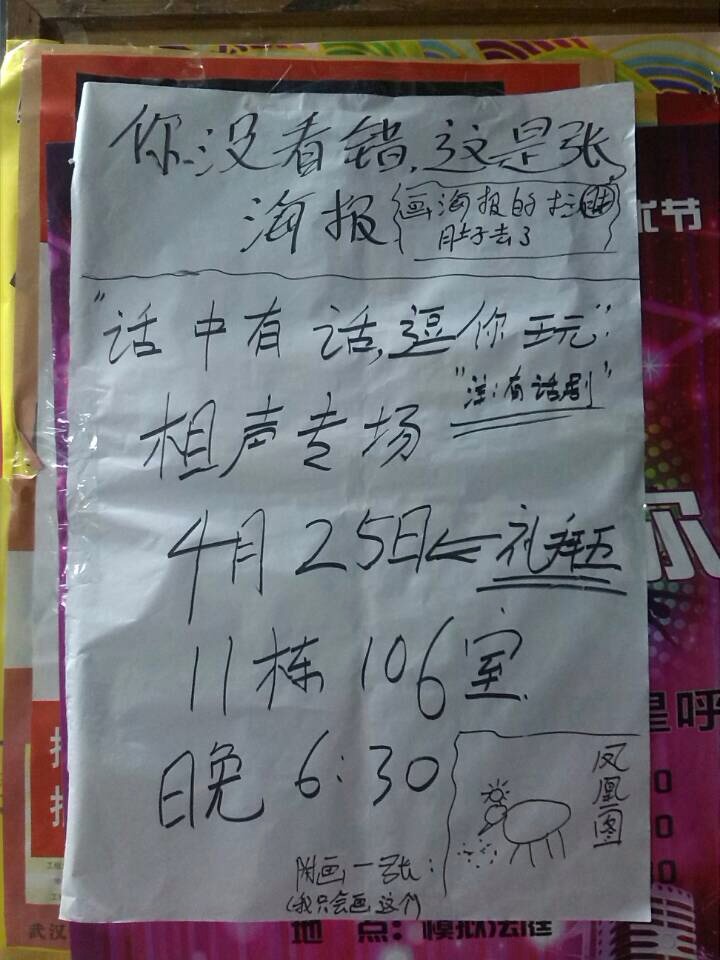 你没看错,这是张
海报
画海报的拉肚
肚子去了
"话中有话,逗你玩"
"注:有话剧"
相声专场
4月25日←礼拜五
11栋106室
晚6:30
凤凰图
附画一张:
(我只会画这个)
术节
你
星呼
武汉
地 点: 模拟法庭